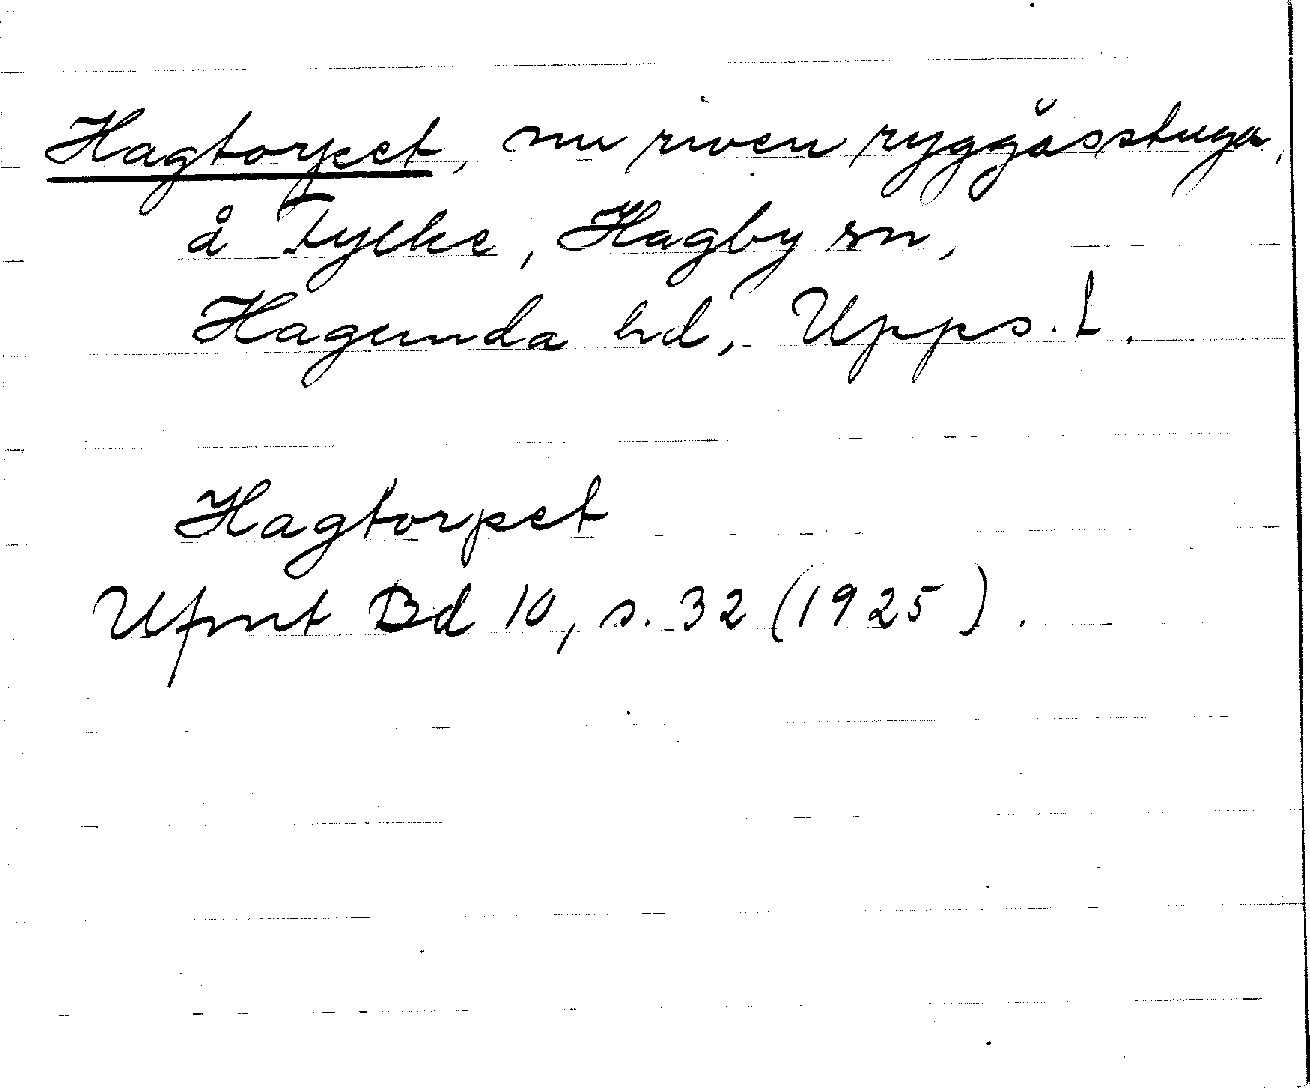 Hagtorpet, nu riven ryggåsstuga,
å Fylke, Hagby sn,
Hagunda hd, Upps. L.
Hagtorpet
Ufmt Bd 10, s. 32 (1925).